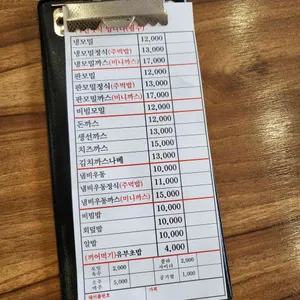 냉모밀 12,000
냉모밀정식(주먹밥) 13,000
냉모밀까스(미니까스) 17,000
판모밀 12,000
판모밀정식(주먹밥) 13,000
판모밀까스(미니까스) 17,000
비빔모밀 12,000
돈까스 12,000
생선까스 13,000
치즈까스 15,000
김치까스나베 13,000
냄비우동 10,000
냄비우동정식(주먹밥) 11,000
냄비우동까스(미니까스) 15,000
비빔밥 10,000
회덮밥 10,000
알밥 10,000
(끼어먹기)유부초밥 4,000
2,000 콜라 사이다 2,000
소주 맥주 5,000 공기밥 1,000
테이블번호